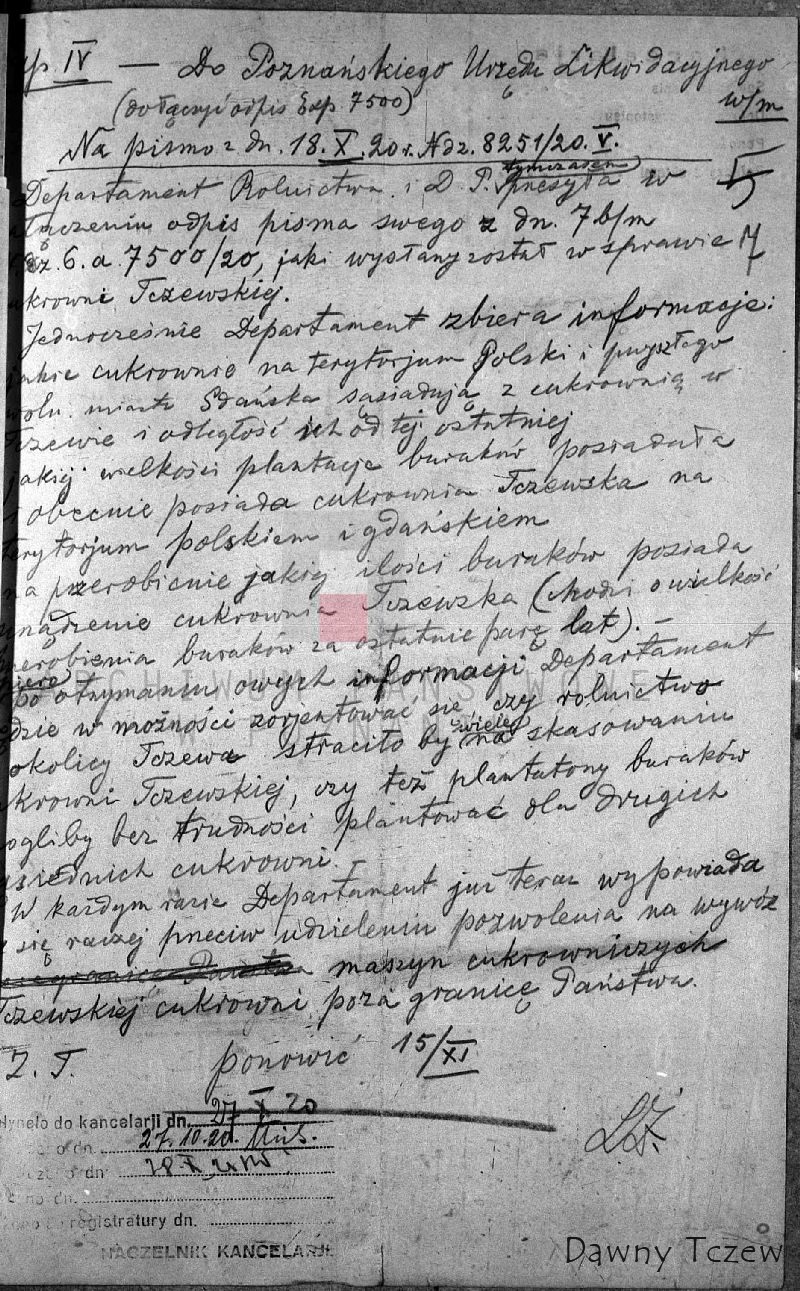 IV — Do Poznańskiego Urzędu Likwidacyjnego
(dołączyć odpis Exp 7500) w/m
Na pismo z dn. 18.X.20 r. N dz. 8251/20.V.
tymczasem
Departament Rolnictwa i D.P. przesyła w
łączeniu odpis pisma swego z dn. 7 b/m
6.a.7500/20, jaki wysłany został w sprawie
ukrowni Tczewskiej.
Jednocześnie Departament zbiera informacje:
jakie cukrownie na terytorjum Polski i przyszłego
woln. miasta Gdańska sąsiadują z cukrownią w
Tczewie i odległość ich od tej ostatniej
jakiej wielkości plantacje buraków posiadała
i obecnie posiada cukrownia Tczewska na
terytorjum polskiem i gdańskiem
na przerobienie jakiej ilości buraków posiada
urządzenie cukrownia Tczewska (chodzi o wielkość
przerobienia buraków za ostatnie parę lat). —
Po otrzymaniu owych informacji Departament
ędzie w możności zorjentować się czy rolnictwo
wiele
okolicy Tczewa straciło by na skasowaniu
ukrowni Tczewskiej, czy też plantatorzy buraków
ogliby bez trudności plantować dla drugich
ąsiednich cukrowni. —
W każdym razie Departament już teraz wypowiada
się raczej przeciw udzieleniu pozwolenia na wywóz
maszyn cukrowniczych
Tczewskiej cukrowni poza granicę Państwa.
Z. T. ponowić 15/XI
płynęło do kancelarji dn. 27 X 20
dn. 27.10.20.
dn.
dn.
registratury dn.
NACZELNIK KANCELARJI
ARCHIWUM PAŃSTWOWE
W POZNANIU
Dawny Tczew